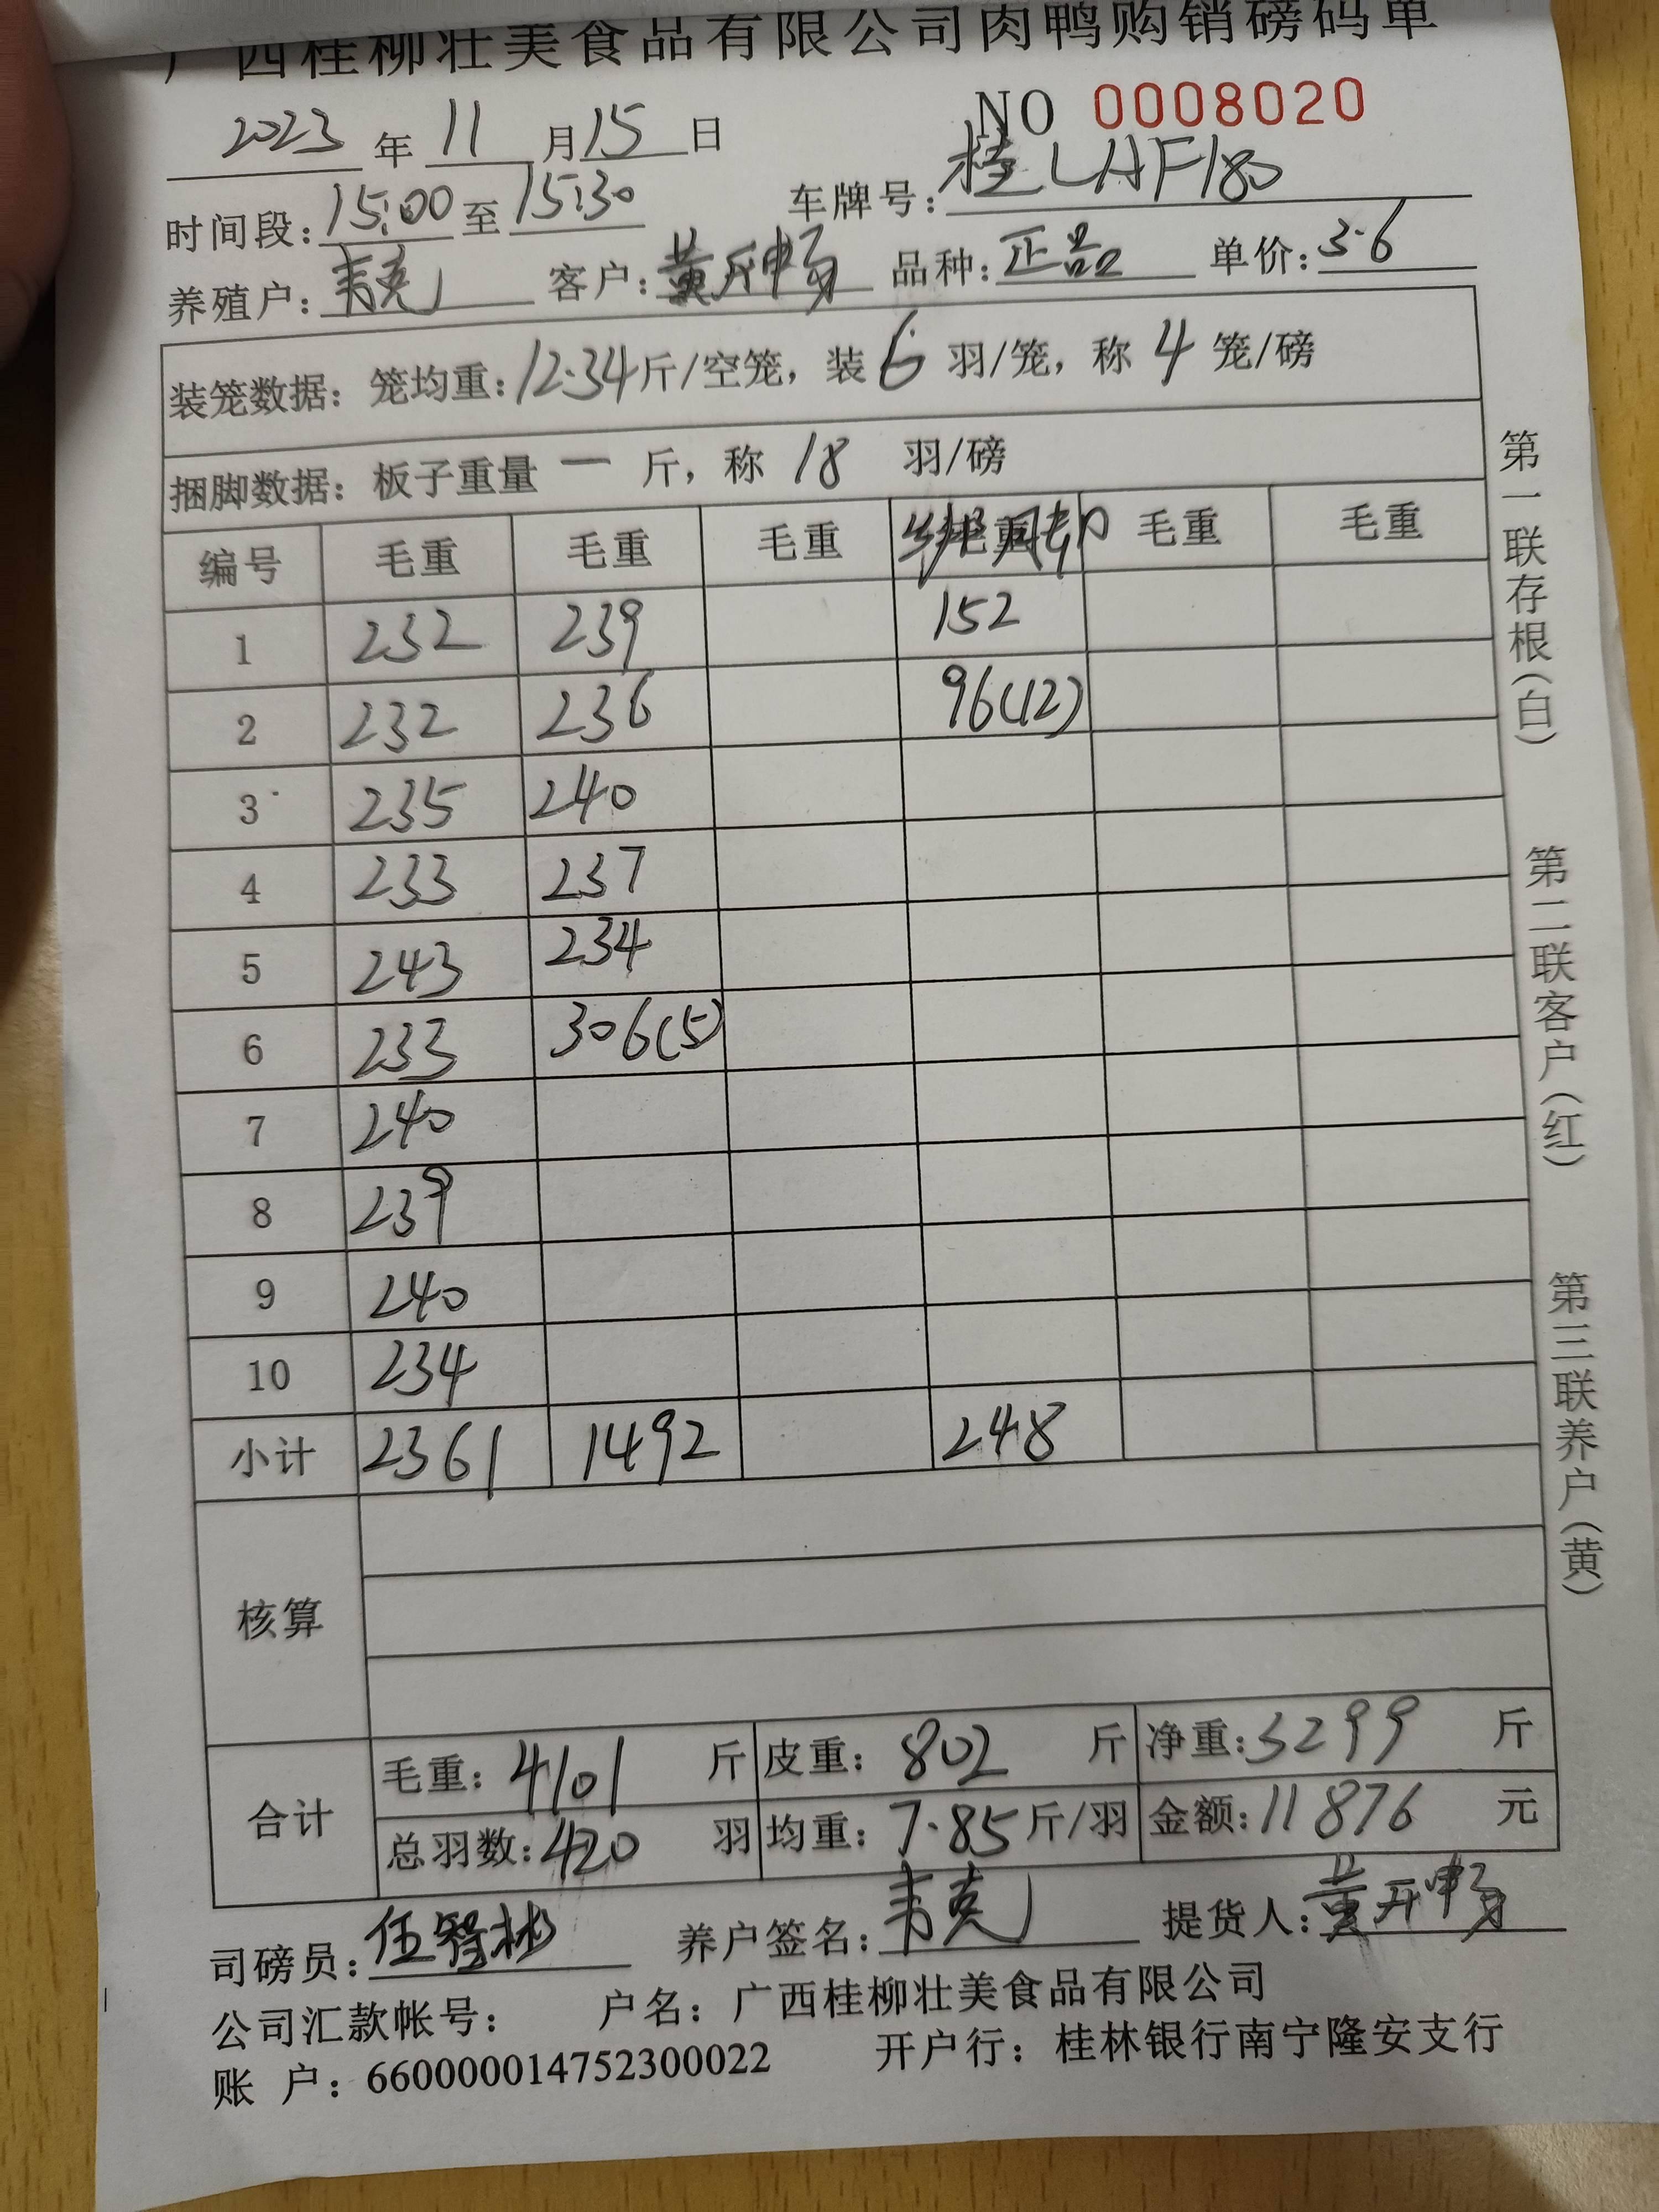 广西桂柳壮美食品有限公司肉鸭购销磅码单
NO 0008020
2023年11月15日
时间段:15:00至15:30 车牌号:桂LAF180
养殖户:韦克 客户:黄开畅 品种:正品 单价:3.6
装笼数据:笼均重:12.34斤/空笼,装6羽/笼,称4笼/磅
捆脚数据:板子重量一斤,称18羽/磅
编号 毛重 毛重 毛重 毛重 毛重 毛重
1 232 239 152
2 232 236 96(12)
3 235 240
4 233 237
5 243 234
6 233 306(5)
7 240
8 239
9 240
10 234
小计 2361 1492 248
核算
合计
毛重:4101斤 皮重:802斤 净重:3299斤
总羽数:420羽 均重:7.85斤/羽 金额:11876元
司磅员:伍智彬 养户签名:韦克 提货人:黄开畅
公司汇款帐号: 户名:广西桂柳壮美食品有限公司
账 户:660000014752300022 开户行:桂林银行南宁隆安支行
第一联存根(白)
第二联客户(红)
第三联养户(黄)